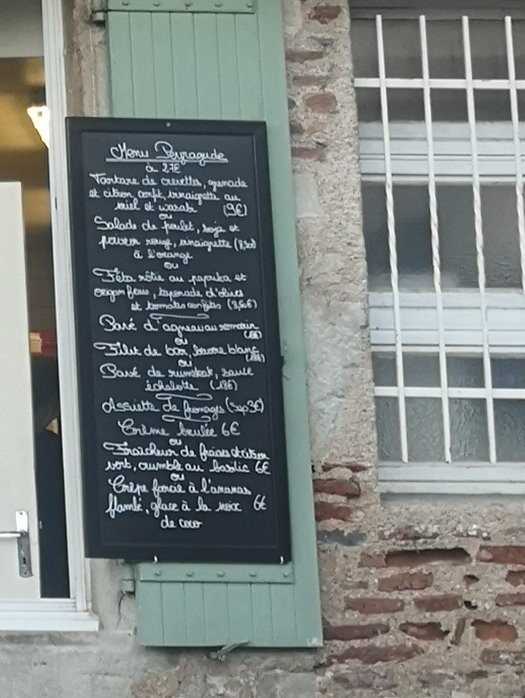 Menu Peyragude
à 27€
Tartare de crevettes, grenade
et citron confit, vinaigrette au
miel et wasabi (9€)
ou
Salade de poulet, soja et
poivron rouge, vinaigrette
à l'orange
ou
Féta rôtie au paprika et
origan frais, tapenade d'olives
et tomates confites
Pavé d'agneau au romarin
ou
Filet de bar, beurre blanc
ou
Pavé de rumsteak, sauce
échalotte (18€)
Assiette de fromages (Sup 3€)
Crème brulée 6€
ou
Fraicheur de fraises et citron
vert, crumble au basilic 6€
ou
Crêpe farcie à l'ananas
flambé, glace à la noix 6€
de coco